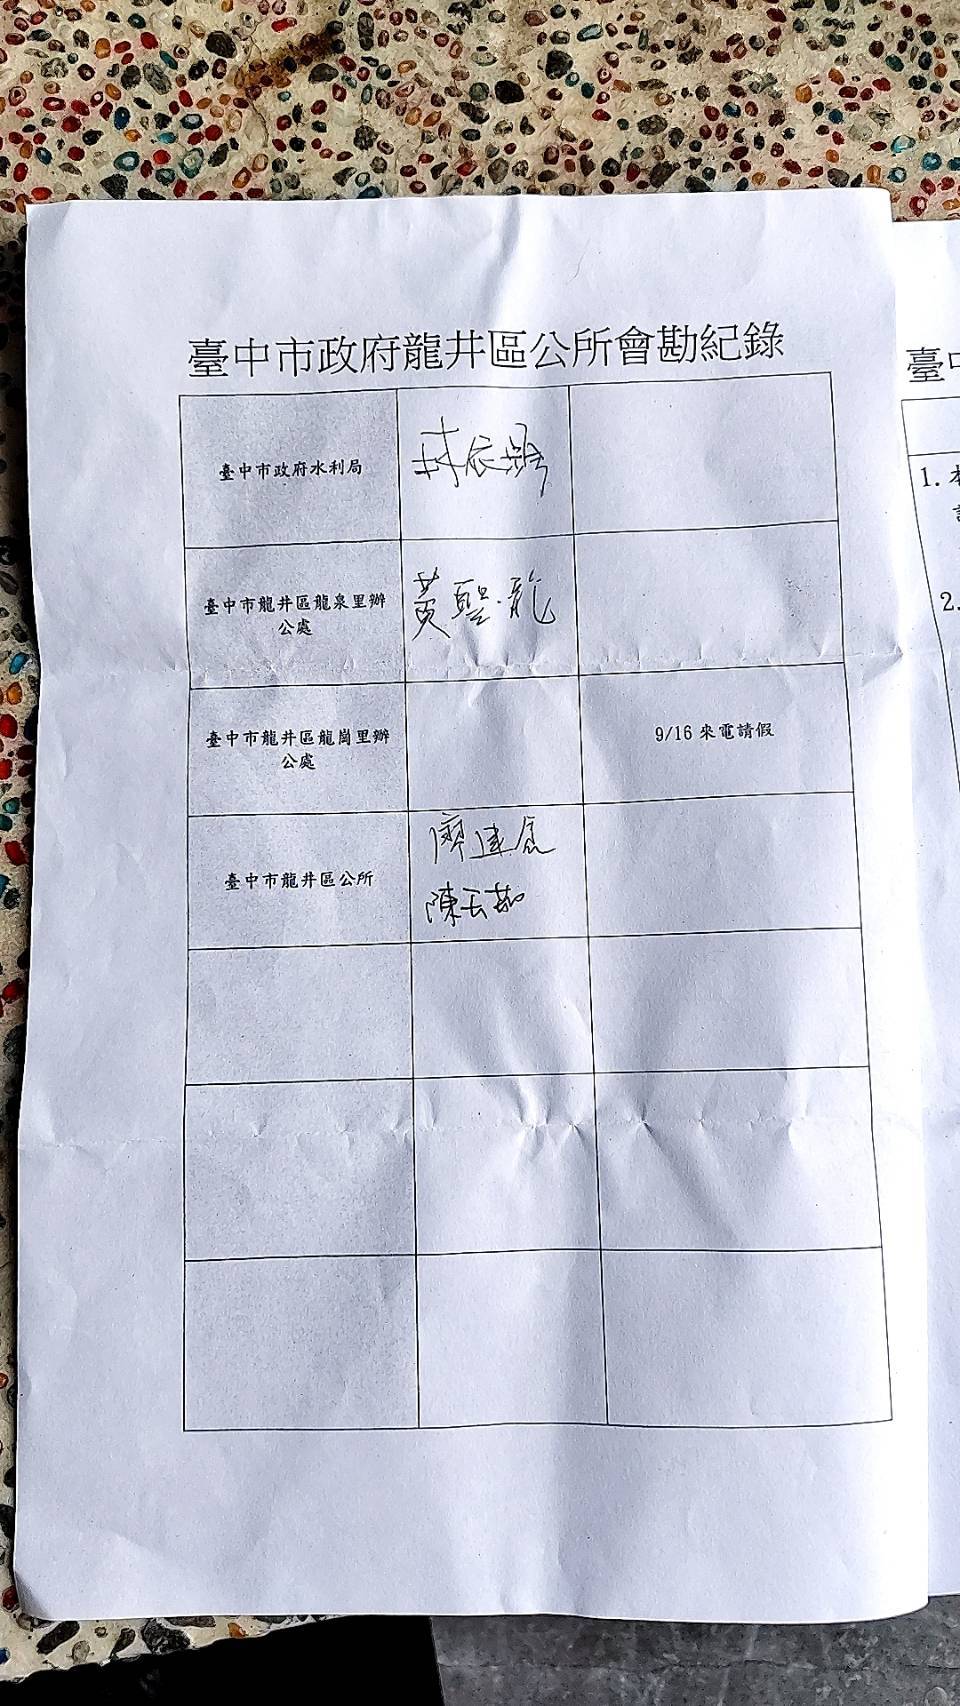 臺中市政府龍井區公所會勘紀錄
臺中市政府水利局
臺中市龍井區龍泉里辦
公處
黃聖龍
臺中市龍井區龍崗里辦
公處
9/16 來電請假
臺中市龍井區公所
廖達
陳云茹
臺
1.本
2.